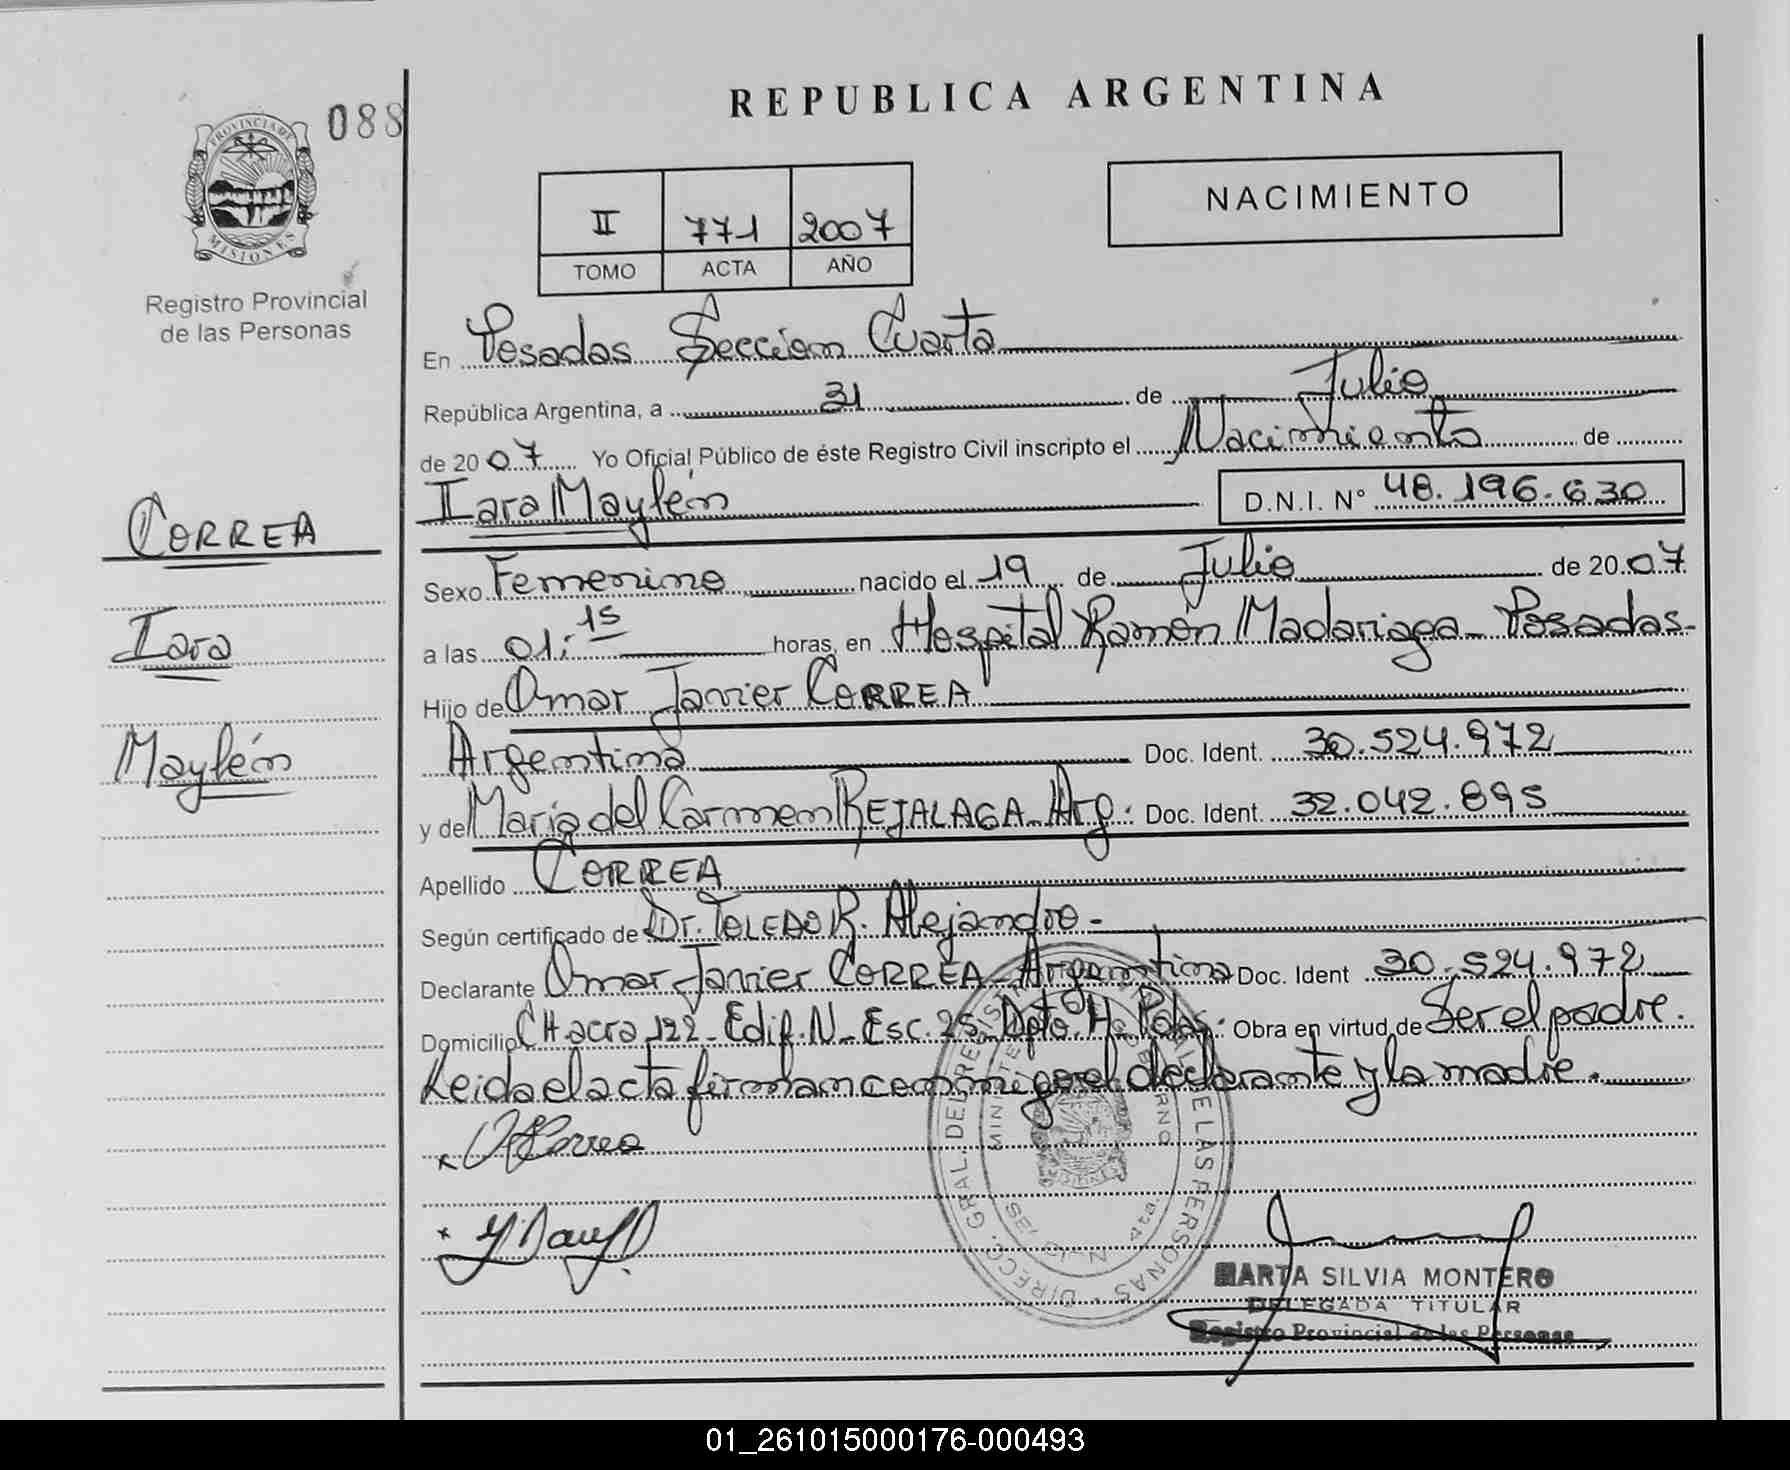 088
PROVINCIA DE
MISIONES
Registro Provincial
de las Personas
REPUBLICA ARGENTINA
II 771 2007
TOMO ACTA AÑO
NACIMIENTO
En Posadas Seccion Cuarta
República Argentina, a 31 de Julio
de 2007 Yo Oficial Público de éste Registro Civil inscripto el Nacimiento de
Iara Maylén D.N.I. N° 48.196.630
CORREA
Iara
Maylén
Sexo Femenino nacido el 19 de Julio de 2007
a las 01:15 horas, en Hospital Ramón Madariaga - Posadas-
Hijo de Omar Javier CORREA
Argentina Doc. Ident. 30.524.972
y de María del Carmen REJALAGA - Arg. Doc. Ident. 32.042.895
Apellido CORREA
Según certificado de Dr. TOLEDO R. Alejandro -
Declarante Omar Javier CORREA - Argentina Doc. Ident 30.524.972
Domicilio CHacra 122 - Edif. N - Esc. 25 - Dpto. H - Pdas. Obra en virtud de Ser el padre.
Leida el acta firman conmigo el declarante y la madre.
x
x
DIRECC. GRAL. DEL REGISTRO DE LAS PERSONAS
4ta.
MARTA SILVIA MONTERO
DELEGADA TITULAR
Registro Provincial de las Personas
01_261015000176-000493